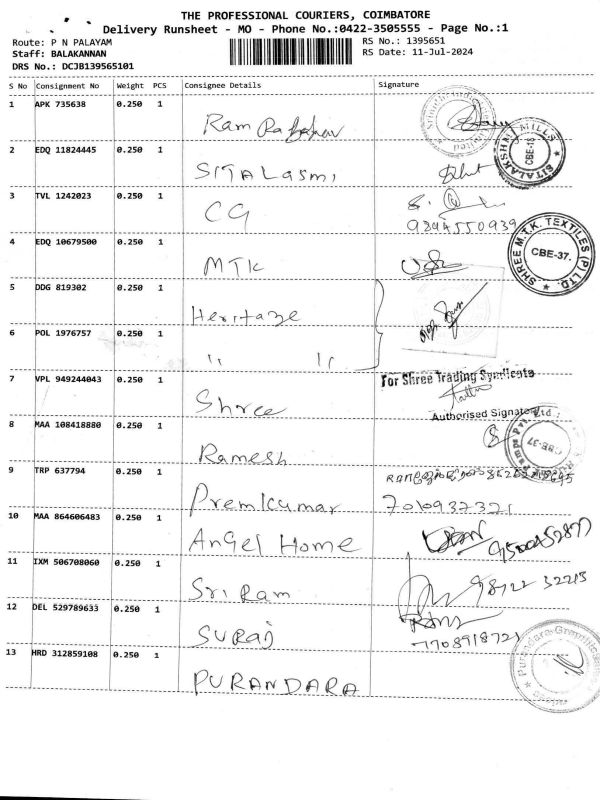 THE PROFESSIONAL COURIERS, COIMBATORE
Delivery Runsheet - MO - Phone No.:0422-3505555 - Page No.:1
Route: P N PALAYAM
Staff: BALAKANNAN
DRS No.: DCJB139565101
RS No.: 1395651
RS Date: 11-Jul-2024
S No Consignment No Weight PCS Consignee Details Signature
1 APK 735638 0.250 1 Ram
2 EDQ 11824445 0.250 1 SITALASMI
SITALAKSHMI MILLS CBE-18
3 TVL 1242023 0.250 1 CG
9894550939
4 EDQ 10679500 0.250 1 MTK
SHREE M.T.K. TEXTILES (P) LTD. CBE-37.
5 DDG 819302 0.250 1 Heritage
6 POL 1976757 0.250 1 " "
7 VPL 949244043 0.250 1 Shree
For Shree Trading Syndicate
Authorised Signatory
8 MAA 108418880 0.250 1 Ramesh
CBE-37
9 TRP 637794 0.250 1 Premkumar
10 MAA 864606483 0.250 1 Angel Home
11 IXM 506708060 0.250 1 Sri Ram
98422 32215
12 DEL 529789633 0.250 1 SURAJ
7708918721
13 HRD 312859108 0.250 1 PURANDARA